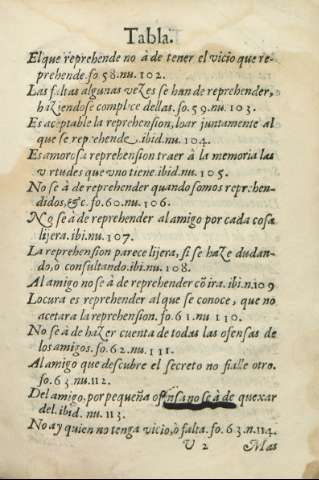 Tabla.
El que reprehende no à de tener el vicio que re-
prehende. fo. 58. nu. 102.
Las faltas algunas vezes se han de reprehender,
haziendose complice dellas. fo. 59. nu. 103.
Es aceptable la reprehension, loar juntamente al
que se reprehende. ibid. nu. 104.
Es amorosa reprehension traer à la memoria las
virtudes que vno tiene. ibid. nu. 105.
No se à de reprehender quando somos reprehen-
didos, &c. fo. 60. nu. 106.
No se à de reprehender al amigo por cada cosa
lijera. ibi. nu. 107.
La reprehension parece lijera, si se haze dudan-
do, ò consultando. ibi. nu. 108.
Al amigo no se à de reprehender cõ ira. ibi. n. 109
Locura es reprehender al que se conoce, que no
acetara la reprehension. fo. 61. nu. 110.
No se à de hazer cuenta de todas las ofensas de
los amigos. fo. 62. nu. 111.
Al amigo que descubre el secreto no fialle otro.
fo. 63. nu. 112.
Del amigo, por pequeña ofensa no se à de quexar
del. ibid. nu. 113.
No ay quien no tenga vicio, ò falta. fo. 63. n. 114.
V 2 Mas